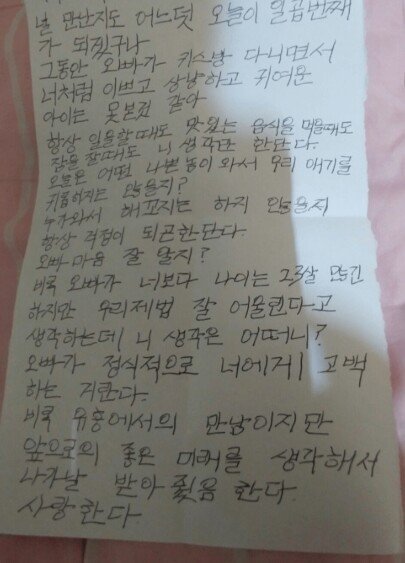 널 만난지도 어느덧 오늘이 일곱번째
가 되겠구나
그동안 오빠가 키스방 다니면서
너처럼 이쁘고 상냥하고 귀여운
아이는 못본것 같아
항상 일을할때도 맛있는 음식을 먹을때도
잠을 잘때도 니 생각만 한단다.
오늘은 어떤 나쁜놈이 와서 우리 애기를
귀찮게하지는 않을지?
누가와서 해꼬지는 하지 않을지
항상 걱정이 되곤한단다
오빠 마음 잘 알지?
비록 오빠가 너보다 나이는 23살 많긴
하지만 우리제법 잘 어울린다고
생각하는데 니 생각은 어떠니?
오빠가 정식적으로 너에게 고백
하는 거란다.
비록 유흥에서의 만남이지만
앞으로의 좋은 미래를 생각해서
나가날 받아줬음 한다
사랑한다